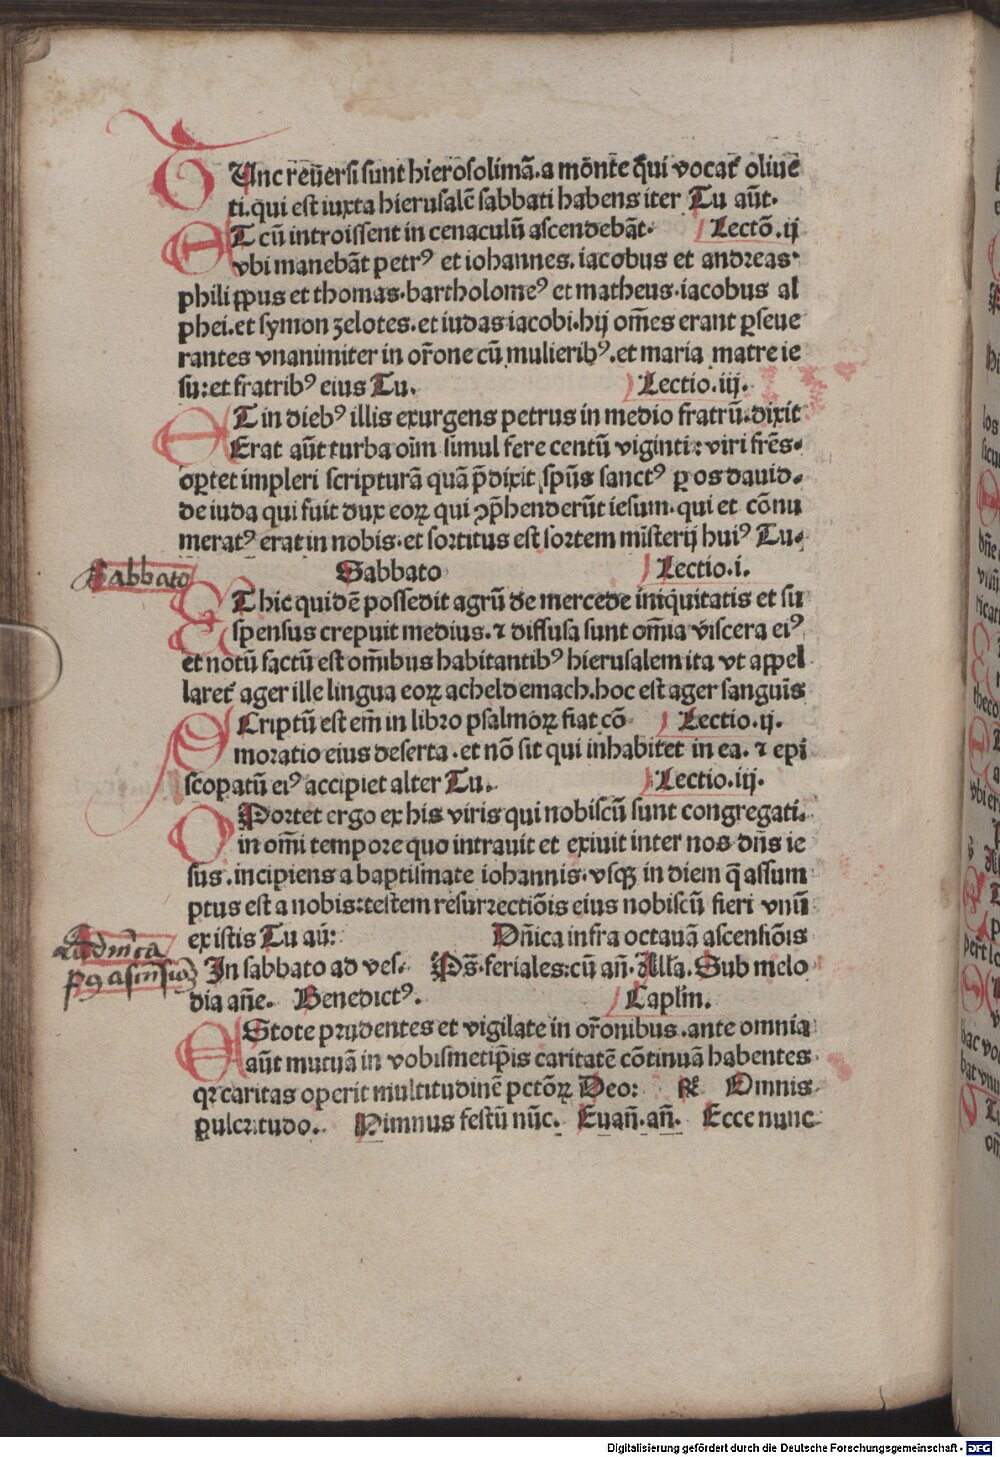 TUnc reūersi sunt hierosolimā.a mōnte q̄ui vocat᷑ oliue
ti.qui est iuxta hierusalē sabbati habens iter Tu aūt.
ET cū introissent in cenaculū ascendebāt. Lectō.ij
vbi manebāt petrꝰ et iohannes. iacobus et andreas.
philippus et thomas.bartholomeꝰ et matheus.iacobus al
phei.et symon zelotes.et iudas iacobi.hij om̄es erant ꝑseue
rantes vnanimiter in or̄one cū mulieribꝰ.et maria matre ie
su:et fratribꝰ eius Tu. Lectio.iij.
ET in diebꝰ illis exurgens petrus in medio fratrū.dixit
Erat aūt turba oīm simul fere centū viginti:viri frēs.
oꝑtet impleri scripturā quā p̄dixit spūs sanctꝰ ꝑ os dauid.
de iuda qui fuit dux eoꝝ qui ↄp̄henderūt iesum.qui et cōnu
meratꝰ erat in nobis.et sortitus est sortem mīsterij huiꝰ Tu.
Sabbato
Sabbato Lectio.i.
ET hic quidē possedit agrū de mercede iniquitatis et su
spensus crepuit medius.⁊ diffusa sunt om̄ia viscera eiꝰ
et notū factū est om̄ibus habitantibꝰ hierusalem ita vt appel
laret᷑ ager ille lingua eoꝝ acheldemach.hoc est ager sanguīs
SCriptū est em̄ in libro psalmoꝝ fiat cō Lectio.ij.
moratio eius deserta.et nō sit qui inhabitet in ea.⁊ epi
scopatū eiꝰ accipiet alter Tu. Lectio.iij.
OPortet ergo ex his viris qui nobiscū sunt congregati.
in om̄i tempore quo intrauit et exiuit inter nos dn̄s ie
sus.incipiens a baptismate iohannis.vsqꝫ in diem q̄ assum
ptus est a nobis:testem resurrectiōis eius nobiscū fieri vnū
ex istis Tu aū: Dn̄ica infra octauā ascensiōis
In sabbato ad ves. Ps̄.feriales:cū an̄.All'a.Sub melo
dia an̄e. Benedictꝰ. Caplm̄.
EStote prudentes et vigilate in or̄onibus.ante omnia
aūt mutuā in vobismetip̄is caritatē cōtinuā habentes
qꝛ caritas operit multitudinē pctōꝝ Deo: ℞ Omnis
pulcritudo. Nimnus festū nūc. Euan̄.an̄. Ecce nunc
Digitalisierung gefördert durch die Deutsche Forschungsgemeinschaft - DFG